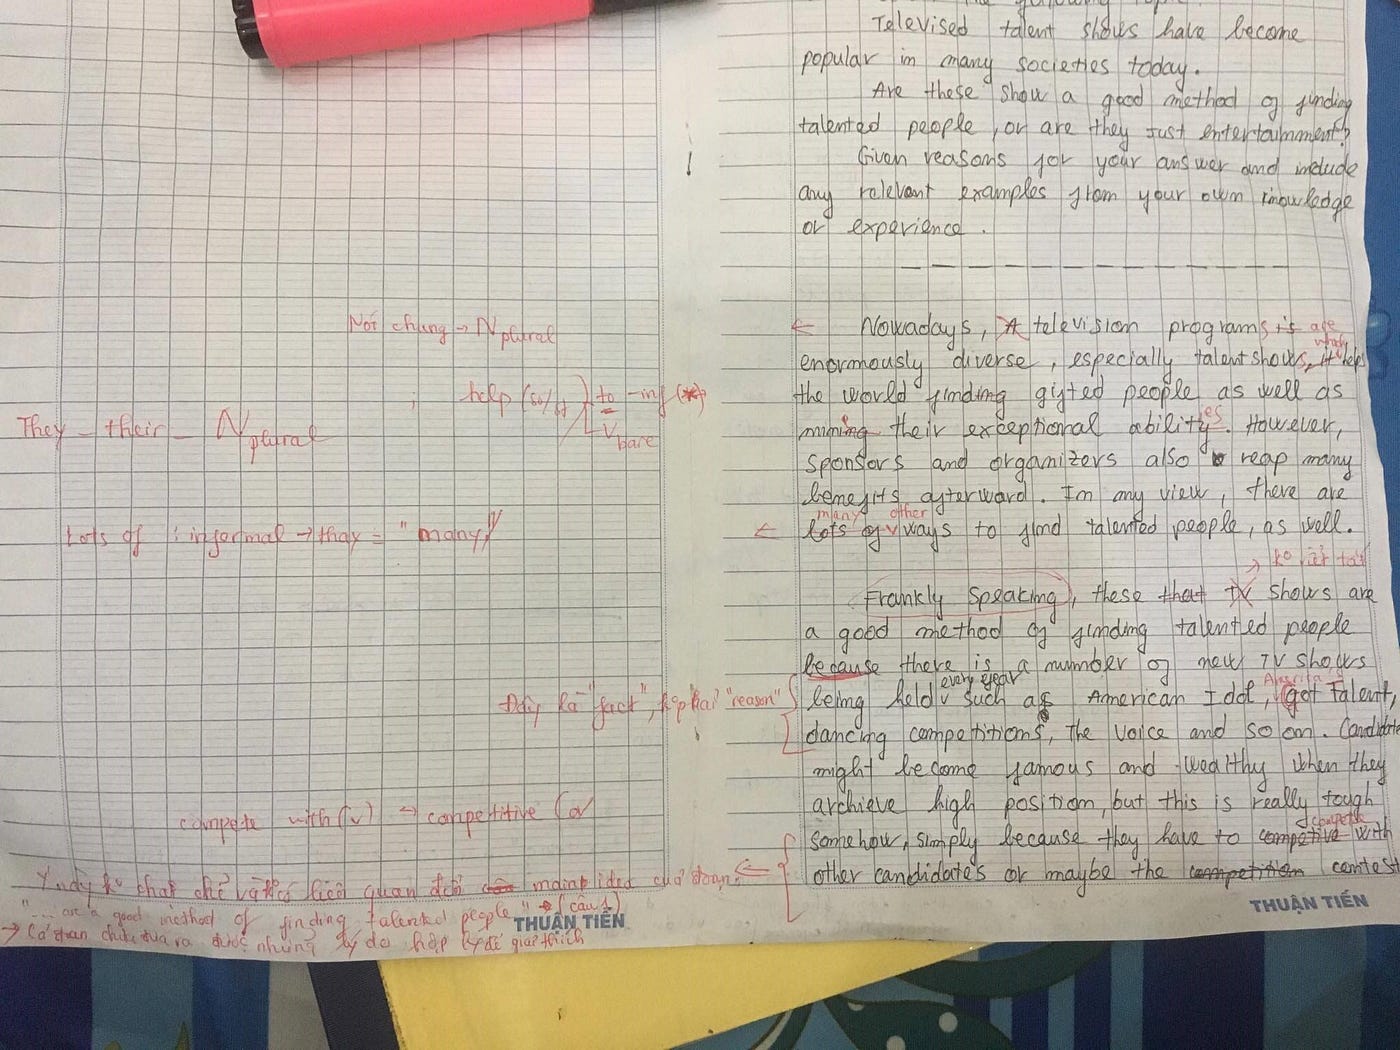 Nói chung → N plural
help (so/st) to -ing
V bare
They - their - N plural
Lots of : informal → thay = "many"
Đây là "fact", ko phải "reason"
compete with (v) → competitive (a)
Ý này ko chặt chẽ và ko có liên quan đến main idea của đoạn.
"... are a good method of finding talented people" → (câu 1)
→ Cả đoạn chưa đưa ra được những lý do hợp lý để giải thích
THUẬN TIẾN
Televised talent shows have become
popular in many societies today.
Are these show a good method of finding
talented people, or are they just entertainment?
Given reasons for your answer and include
any relevant examples from your own knowledge
or experience.
← Nowadays, television programs is are
which
enormously diverse, especially talent shows, it helps
the world finding gifted people as well as
mining their exceptional ability es. However,
sponsors and organizers also reap many
benefits afterward. In my view, there are
many other
← lots of v ways to find talented people, as well.
→ ko viết tắt
Frankly speaking, these that TV shows are
a good method of finding talented people
because there is a number of new TV shows
every year
being held v such as American Idol, got talent,
dancing competitions, the voice and so on. Candidate
might become famous and wealthy when they
archieve high position, but this is really tough
compete
somehow, simply because they have to competive with
other candidate's or maybe the competition contest
THUẬN TIẾN